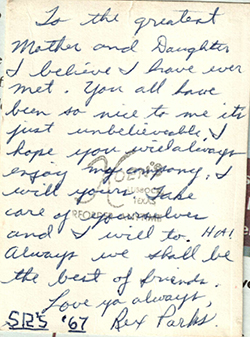 To the greatest
Mother and Daughter
I believe I have ever
met. You all have
been so nice to me it's
just unbelievable. I
hope you will always
enjoy my company. I
will yours. Take
care of yourselves
and I will to. HA!
Always we shall be
the best of friends.
Love ya always,
SR's '67 Rex Parks